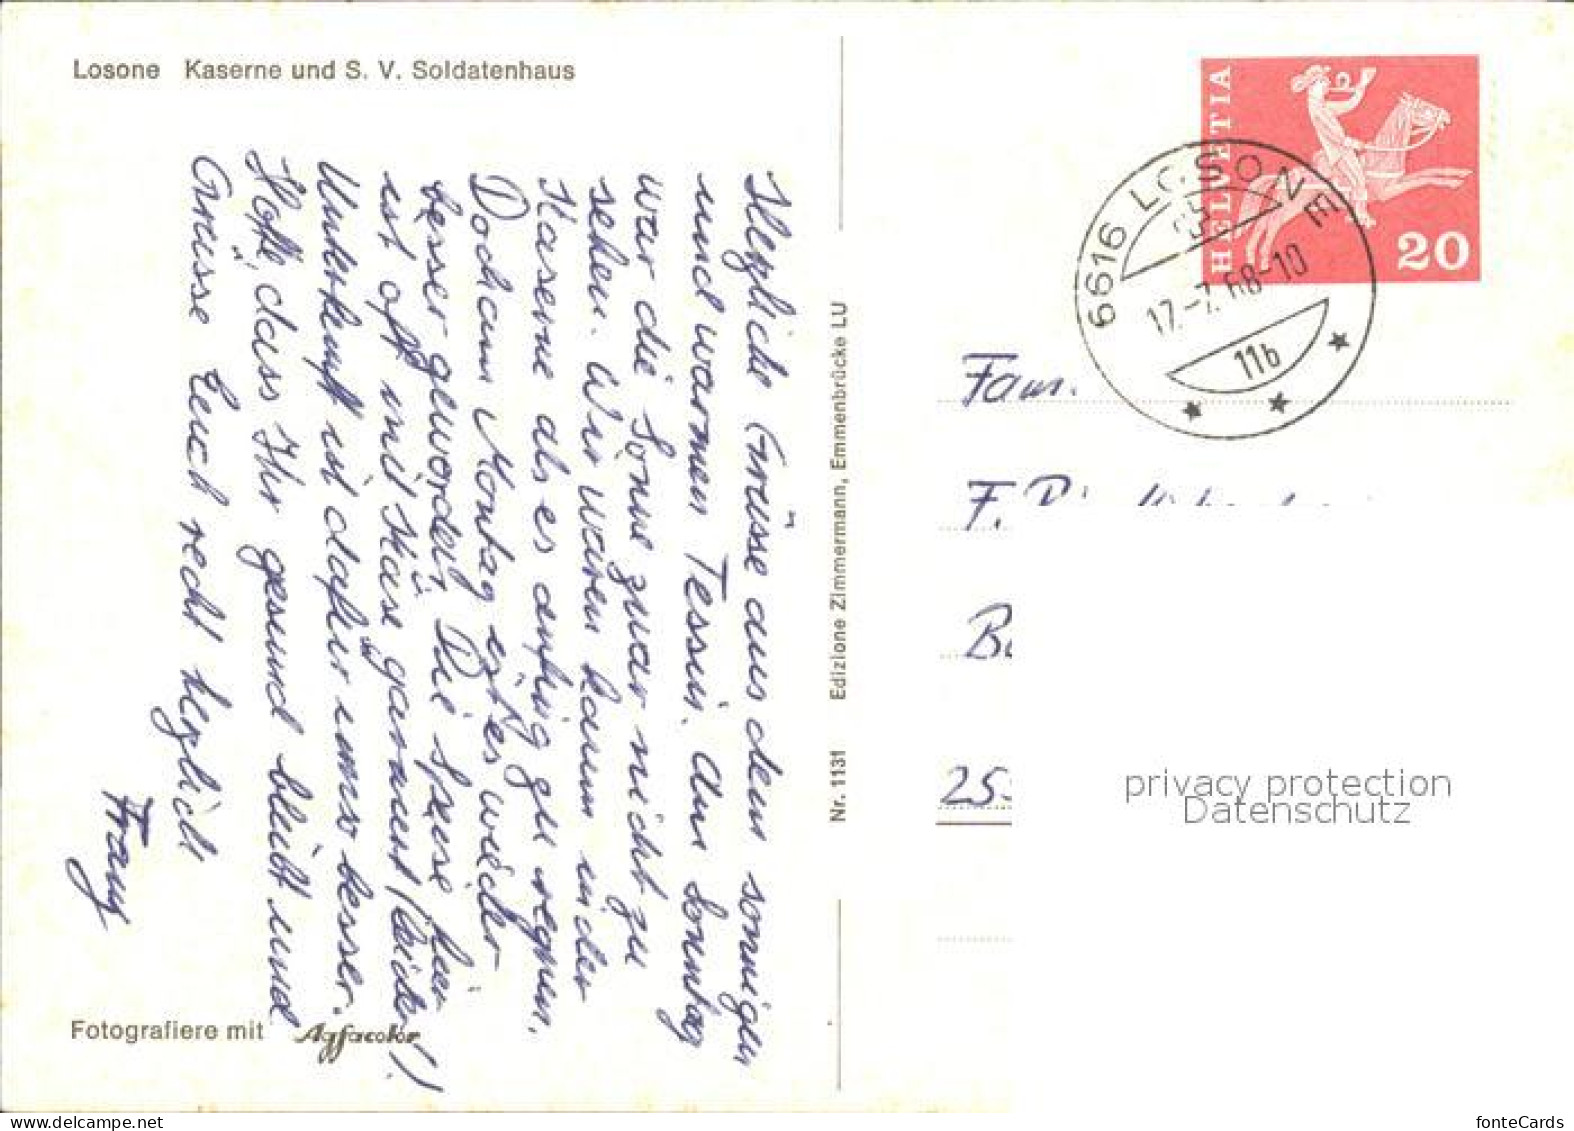 Losone Kaserne und S. V. Soldatenhaus
Herzliche Grüsse aus dem sonnigen
und warmen Tessin. Am Sonntag
war die Sonne zwar nicht zu
sehen. Wir waren kaum in der
Kaserne als es anfing zu regnen.
Doch am Montag ist es wieder
besser geworden. Die Speise hier
ist oft mit Käse garniert (leider!).
Unterkunft ist dafür umso besser.
Hoffe, dass Ihr gesund bleibt und
Grüsse Euch recht herzlich
Franz
Fotografiere mit Agfacolor
Nr. 1131 Edizione Zimmermann, Emmenbrücke LU
HELVETIA
20
6616 LOSONE
17.-7.68-10
11b
Fam.
F.
25
privacy protection
Datenschutz
fonteCards